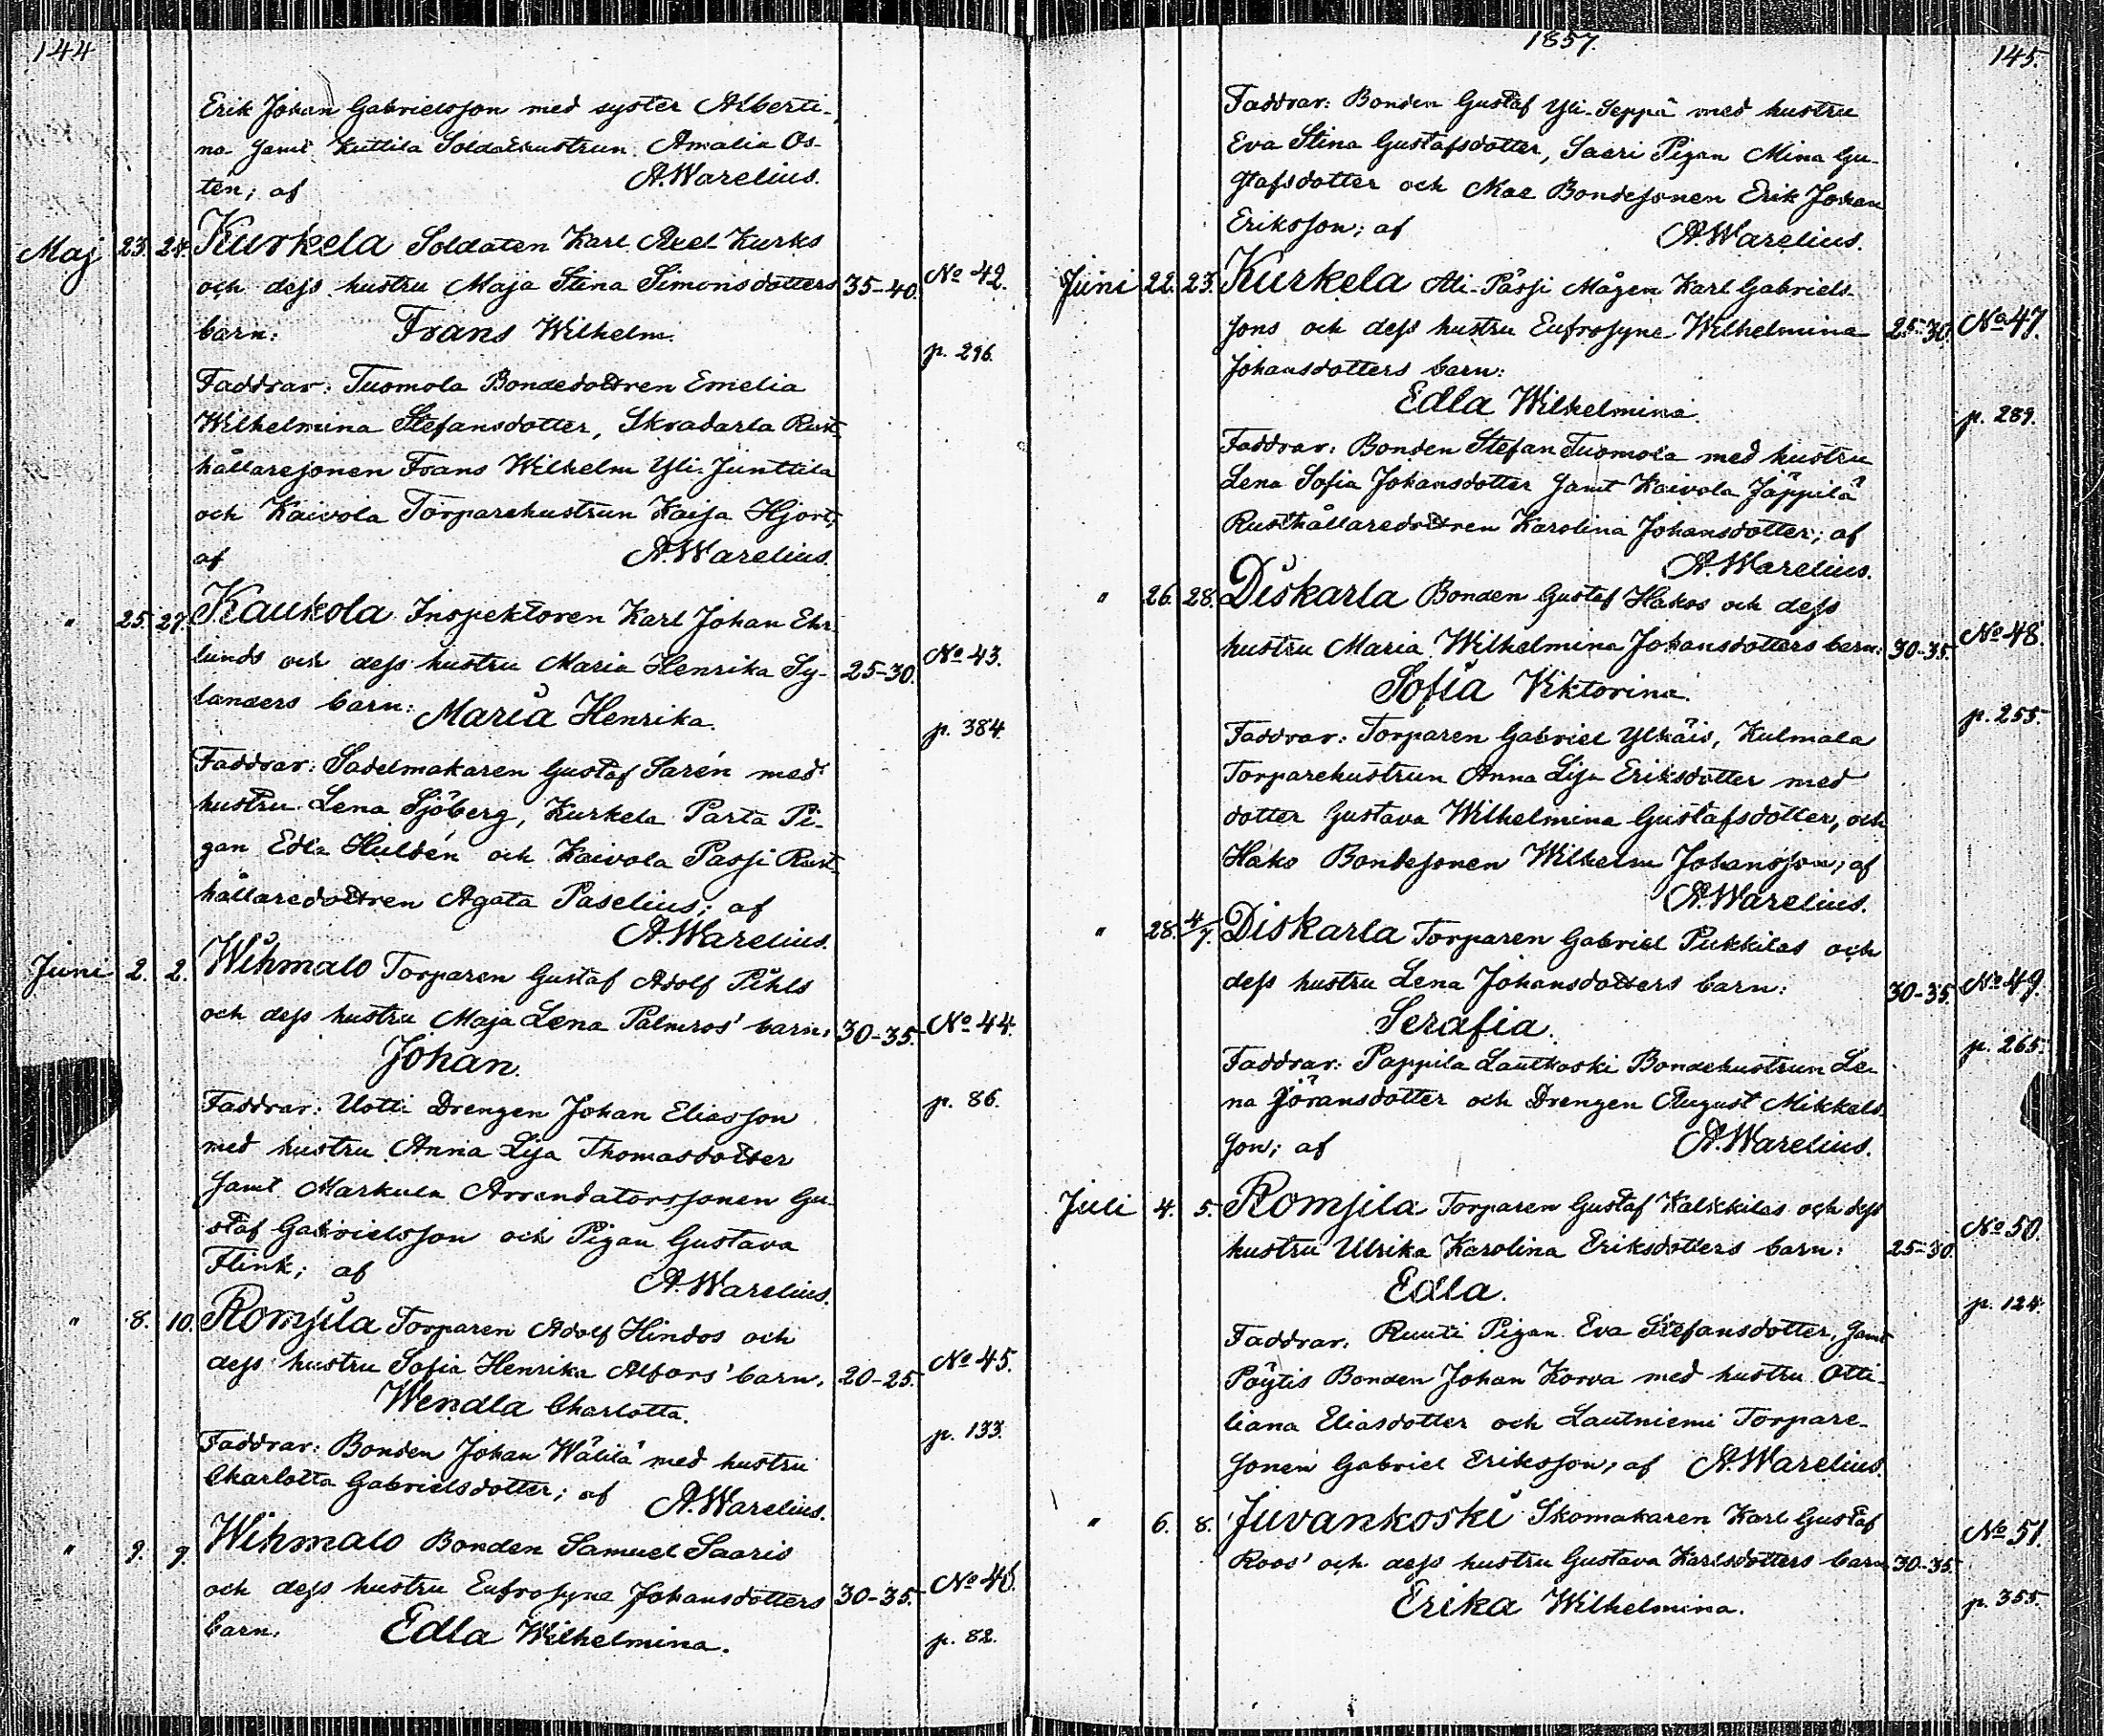 144
Erik Johan Gabrielsson med syster Alberti-
na samt Kuttila Soldatshustrun Amalia Os-
ten; af A. Warelius.
Maj 23. 24. Kurkela Soldaten Karl Axel Kurks
och dess hustru Maja Stina Simonsdotters 35-40. No 42.
barn: Frans Wilhelm.
p. 296.
Faddrar: Tuomola Bondedottren Emelia
Wilhelmina Stefansdotter, Skradarla Rust-
hållaresonen Frans Wilhelm Yli-Junttila
och Kaivola Torparehustrun Kaisa Hjort;
af A. Warelius.
" 25. 27. Kaukola Inspektoren Karl Johan Ehr-
lunds och dess hustru Maria Henrika Sy- 25-30. No 43.
landers barn: Maria Henrika.
p. 384.
Faddrar: Sadelmakaren Gustaf Sarén med
hustru Lena Sjöberg, Kurkela Parta Pi-
gan Edla Huldén och Kaivola Passi Rust-
hållaredottren Agata Paselius; af
A. Warelius.
Juni 2. 2. Wihmalo Torparen Gustaf Adolf Pihls
och dess hustru Maja Lena Palmros' barn: 30-35. No 44.
Johan.
Faddrar: Uotti Drengen Johan Eliasson p. 86.
med hustru Anna Lisa Thomasdotter
samt Markula Arrendatorssonen Gu-
staf Gabrielsson och Pigan Gustava
Flink; af A. Warelius.
" 8. 10. Romsila Torparen Adolf Hindos och
dess hustru Sofia Henrika Alfors' barn. 20-25. No 45.
Wendla Charlotta.
Faddrar: Bonden Johan Wälilä med hustru p. 133.
Charlotta Gabrielsdotter; af A. Warelius.
" 9. 9. Wihmalo Bonden Samuel Saaris
och dess hustru Eufrosyne Johansdotters 30-35. No 46.
barn. Edla Wilhelmina. p. 82.
1857. 145.
Faddrar: Bonden Gustaf Yli-Seppä med hustru
Eva Stina Gustafsdotter, Saari Pigan Mina Gu-
stafsdotter och Bondesonen Erik Johan
Eriksson; af A. Warelius.
Juni 22. 23. Kurkela Ali-Passi Mågen Karl Gabriels-
sons och dess hustru Eufrosyne Wilhelmina 25-30. No 47.
Johansdotters barn:
Edla Wilhelmina. p. 289.
Faddrar: Bonden Stefan Tuomola med hustru
Lena Sofia Johansdotter samt Kaivola Jäppilä
Rusthållaredottren Karolina Johansdotter; af
A. Warelius.
" 26. 28. Diskarla Bonden Gustaf Hakos och dess
hustru Maria Wilhelmina Johansdotters barn: 30-35. No 48.
Sofia Viktorina.
p. 255.
Faddrar: Torparen Gabriel Ylhäis, Kulmala
Torparehustrun Anna Lisa Eriksdotter med
dotter Gustava Wilhelmina Gustafsdotter, och
Hako Bondesonen Wilhelm Johansson; af
A. Warelius.
" 28. 4/7. Diskarla Torparen Gabriel Pukkilas och
dess hustru Lena Johansdotters barn: 30-35. No 49.
Serafia.
p. 265.
Faddrar: Pappila Lautkoski Bondehustrun Le-
na Göransdotter och Drengen August Mikkels-
son; af A. Warelius.
Juli 4. 5. Romsila Torparen Gustaf Kalikkilas och dess
hustru Ulrika Karolina Eriksdotters barn: 25-30. No 50.
Edla.
p. 124.
Faddrar. Ruuti Pigan Eva Stefansdotter, samt
Pöytis Bonden Johan Korva med hustru Otti-
liana Eliasdotter och Lautniemi Torpare-
sonen Gabriel Eriksson; af A. Warelius.
" 6. 8. Juvankoski Skomakaren Karl Gustaf
Roos' och dess hustru Gustava Karlsdotters barn 30-35. No 51.
Erika Wilhelmina. p. 355.